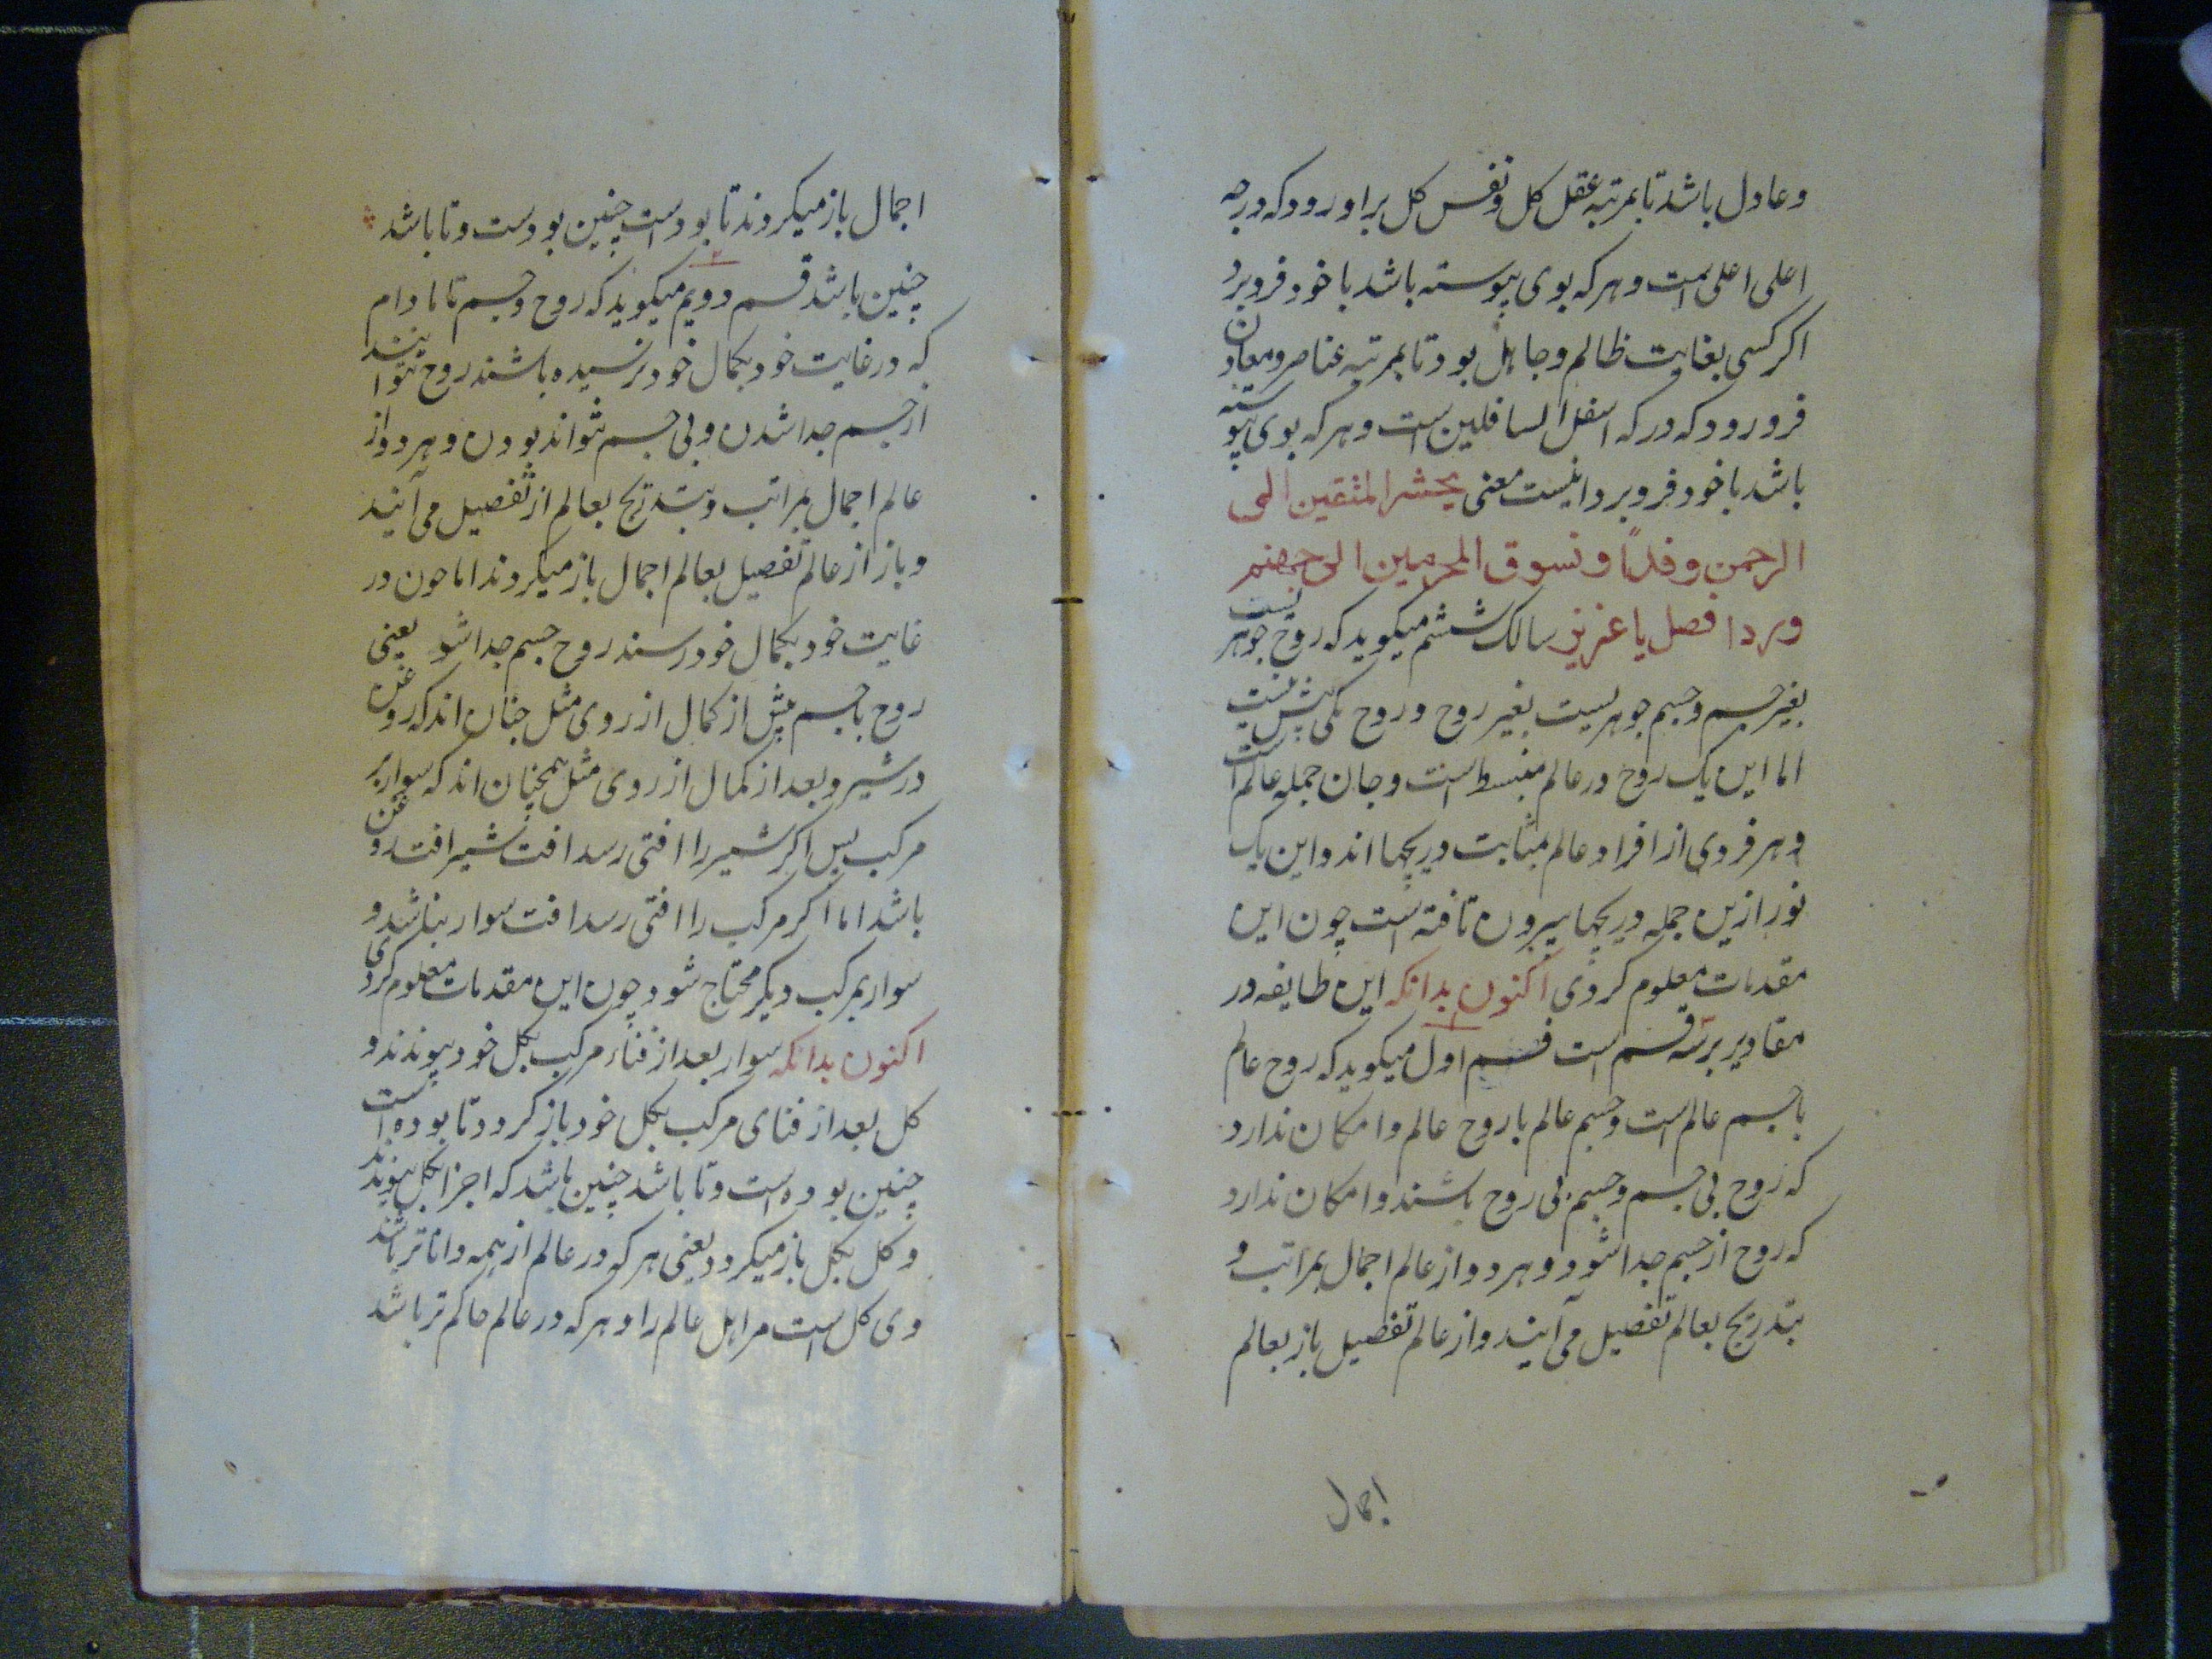 وعادل باشد تا بمرتبه عقل کل ونفس کل براورود که درجه
اعلی اعلی است وهرکه بوی پیوسته باشد با خود فروبرد
اکر کسی بغایت ظالم وجاهل بود تا بمرتبه عناصر ومعادن
فرورود که درکه اسفل السافلین است وهرکه بوی پیوسته
باشد با خود فروبرد اینست معنی یحشر المتقین الی
الرحمن وفدًا ونسوق المجرمین الی جهنم
وردا فصل یا عزیز سالک ششم میکوید که روح جوهریست
بغیر جسم وجسم جوهریست بغیر روح وروح یکی بیش نیست
اما این یک روح در عالم منبسط است وجان جمله عالم است
وهر فردی از افراد عالم مثابت دریچها اند واین یک
نور ازین جمله دریچها بیرون تافته است چون این
مقدمات معلوم کردی اکنون بدانکه این طایفه در
مقادیر برسه قسم است قسم اول میکوید که روح عالم
با جسم عالم است وجسم عالم با روح عالم وامکان ندارد
که روح بی جسم وجسم بی روح باشند وامکان ندارد
که روح از جسم جدا شود وهر دو از عالم اجمال بمراتب و
بتدریج بعالم تفصیل می آیند واز عالم تفصیل باز بعالم
اجمال
اجمال باز میکروند تا بودست چنین بودست وتا باشد
چنین باشد قسم دویم میکوید که روح وجسم تا مادام
که در غایت خود بکمال خود نرسیده باشند روح نتوانند
از جسم جدا شدن وبی جسم نتواند بودن وهر دو از
عالم اجمال بمراتب وبتدریج بعالم از تفصیل می آیند
وباز از عالم تفصیل بعالم اجمال باز میکروند اما چون در
غایت خود بکمال خود رسند روح جسم جدا شو یعنی
روح با جسم پیش از کمال از روی مثل چنان اند که روغن
در شیر وبعد از کمال از روی مثل همچنان اند که سوار بر
مرکب پس اکر شیر را افتی رسد افت شیر افت روغن
باشد اما اکر مرکب را افتی رسد افت سوار نباشد و
سوار بمرکب دیکر محتاج شود چون این مقدمات معلوم کردی
اکنون بدانکه سوار بعد از فناء مرکب بکل خود پیوندند و
کل بعد از فنای مرکب بکل خود باز کردد تا بوده است
چنین بوده است وتا باشد چنین باشد که اجزا بکل پیوندند
وکل بکل باز میکردد یعنی هرکه در عالم از همه داناتر باشد
وی کل است مر اهل عالم را وهرکه در عالم حاکم تر باشد